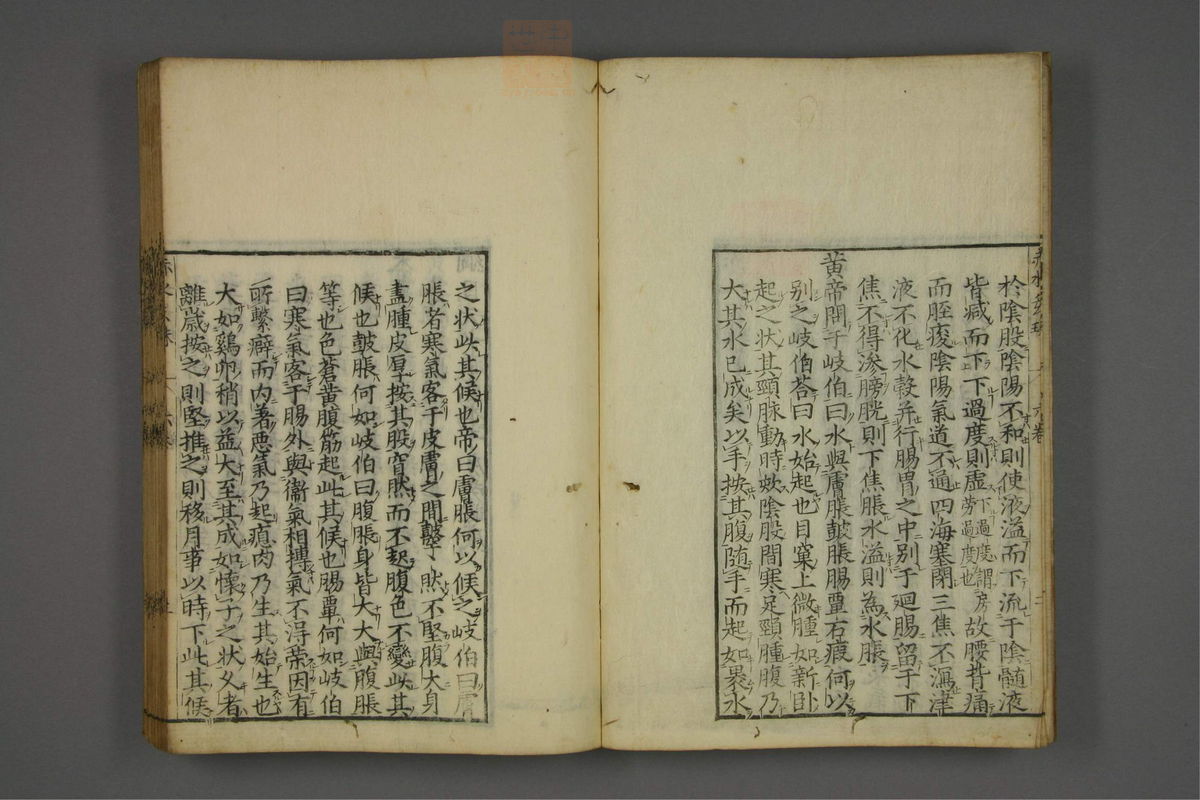 於陰股陰陽不和則使液溢而下流于陰髓液
皆减而下下過度則虛下過度謂房勞過度也故腰背痛
而脛痠陰陽氣道不通四海塞閉三焦不瀉津
液不化水糓并行腸胃之中别于廻腸留于下
焦不得滲膀胱則下焦脹水溢則為水脹
黄帝問于岐伯曰水與膚脹鼓脹腸覃石瘕何以
别之岐伯荅曰水始起也目窠上微腫如新卧
起之状其頸脉動時欬陰股間寒足頸腫腹乃
大其水已成矣以手按其腹随手而起如裹水
之状此其候也帝曰膚脹何以候之岐伯曰膚
脹者寒氣客于皮膚之間𪔣𪔣然不堅腹大身
盡腫皮厚按其股窅然而不起腹色不變此其
候也鼓脹何如岐伯曰腹脹身皆大大與腹脹
等也色蒼黄腹筋起此其候也腸覃何如岐伯
曰寒氣客于腸外與衞氣相搏氣不淂荣因有
所繫癖而内著悪氣乃起瘜肉乃生其始生也
大如鷄卵稍以益大至其成如懐子之状久者
離歳按之則堅推之則移月事以時下此其候